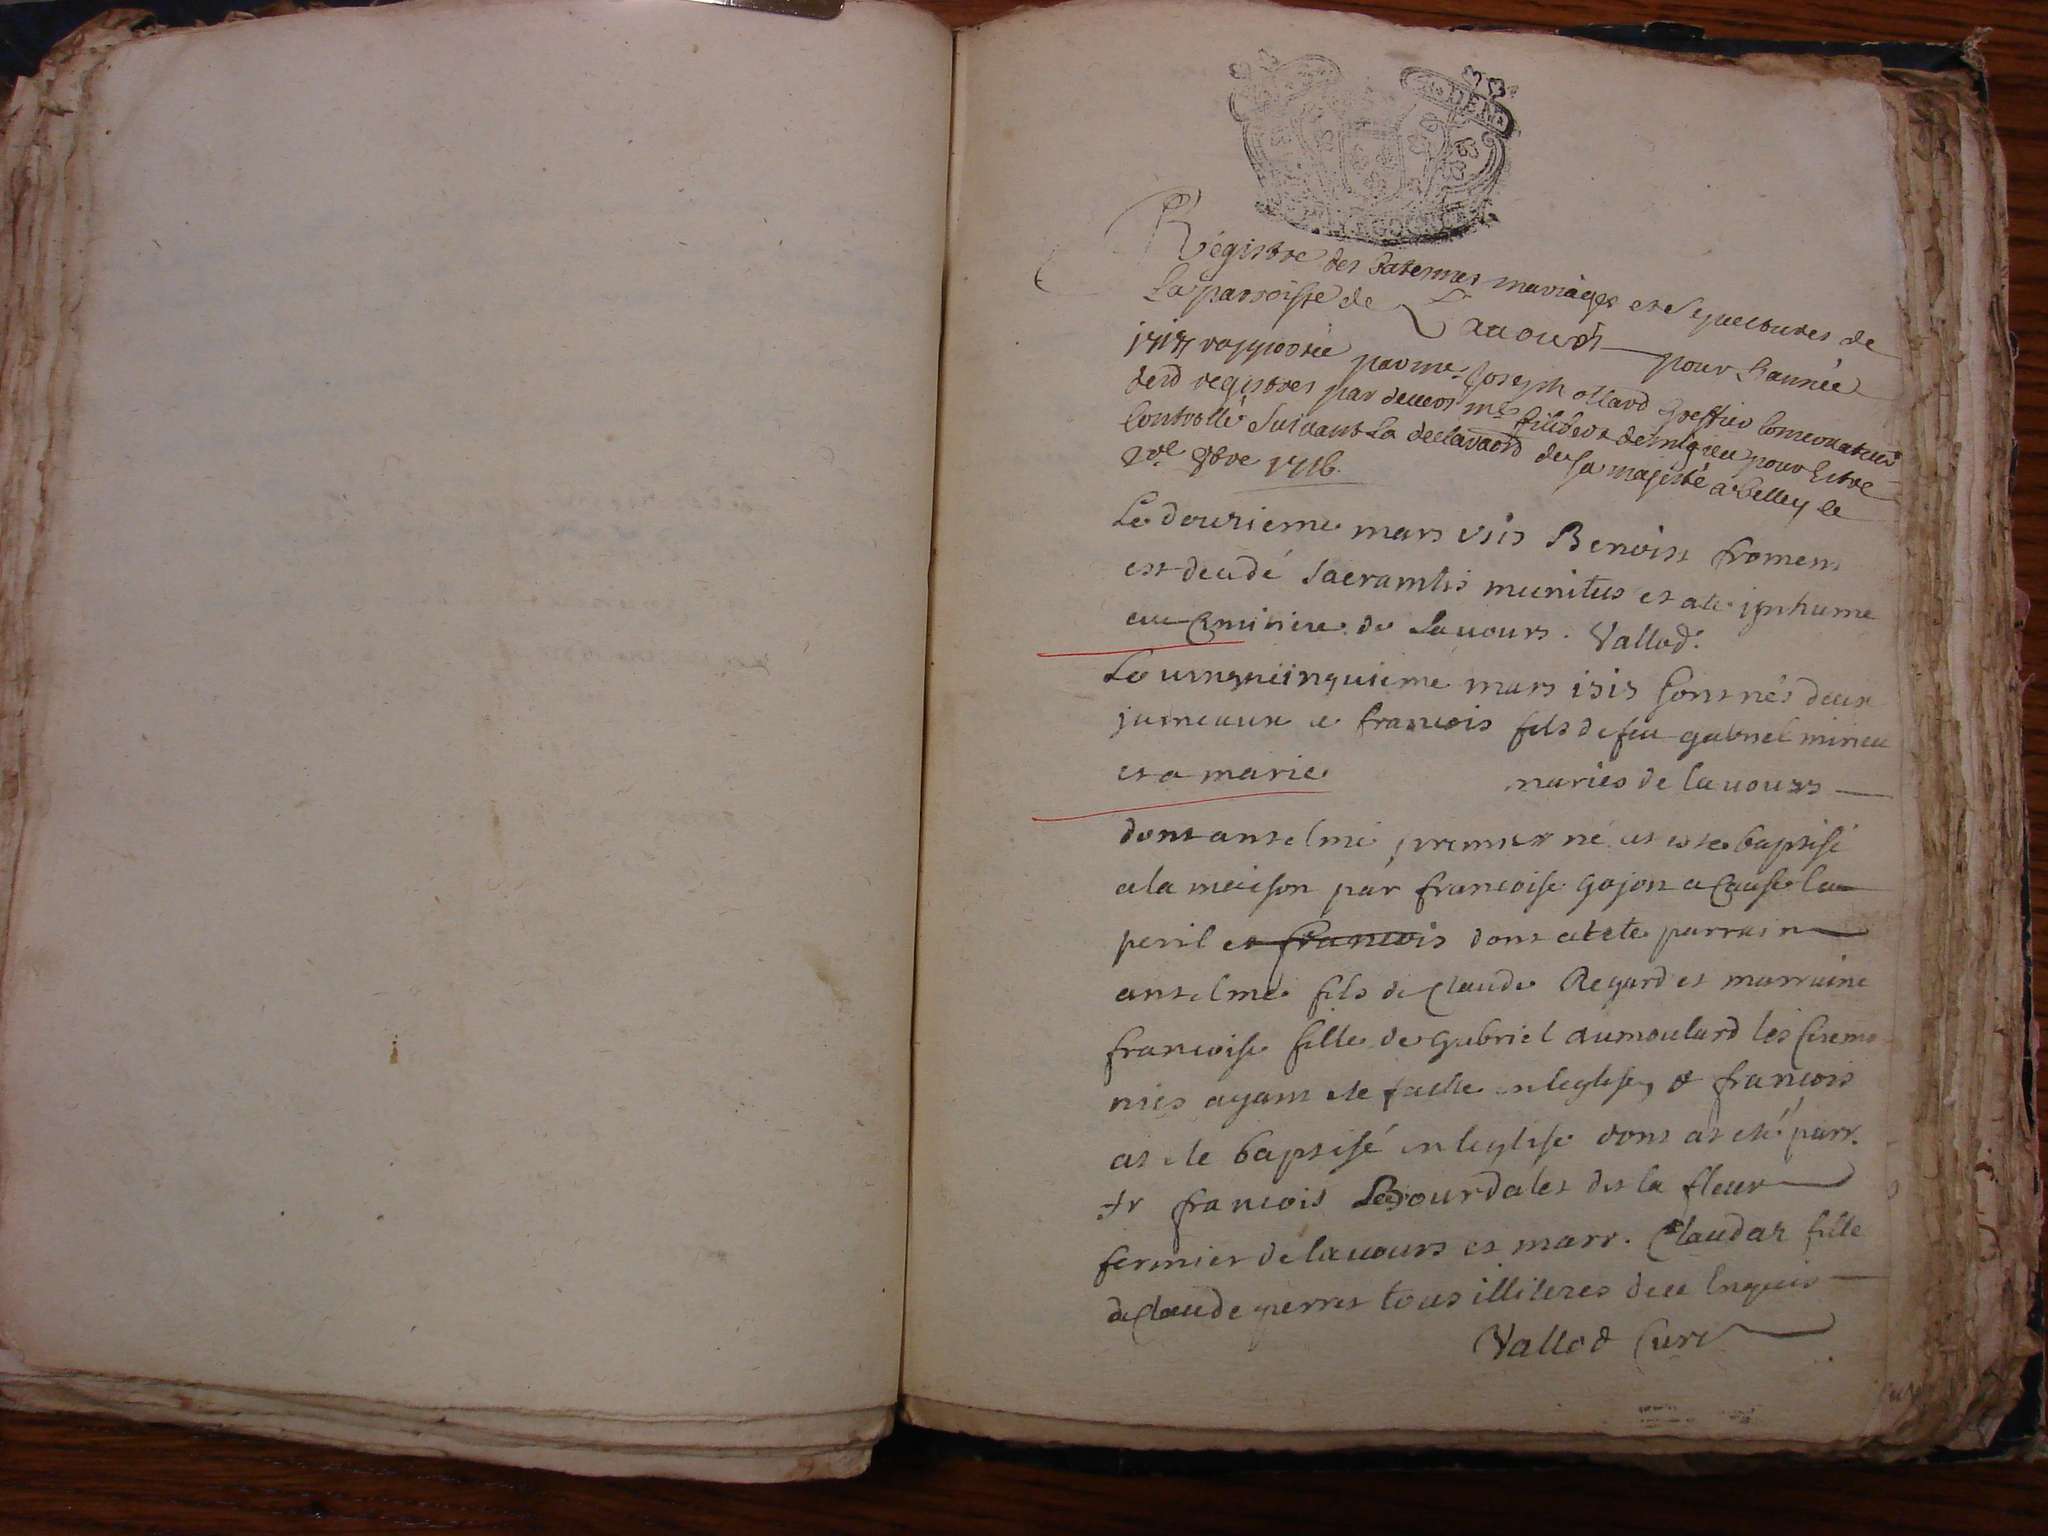 Régistre des Batesmes mariages et Sepulctures de
La parroisse de Lavours pour L'année
1717 rapportée par me Joseph ollard Greffier
desd registres par devers mes pour Estre
Controllé suivant La declaraôn de sa majesté a belley le
8bre 1716.
Le douzieme mars 1717 Benoist froment
est decedé sacramtis munitus et a ete inhume
au Cimitiere de Lavours. Vallod.
Le vingt cinquieme mars 1717 sont nés deux
jumeaux a francois fils de feu gabriel mineu
et a marie mariés de lavours
dont anselme premier né at este baptisé
a la maison par francoise gojon a Cause du
peril et francois dont at ete parrain
anselme fils de Claude Regard et marraine
francoise fille de Gabriel dumoulard les seremo
nies ayant ete faitte en leglise, & francois
at ete baptisé en leglise dont at eté parr.
sr francois Bourdales dit la fleur
fermier de lavours et marr. Claudaz fille
de Claude perret tous illiteres deu Enquis
Vallod Curé